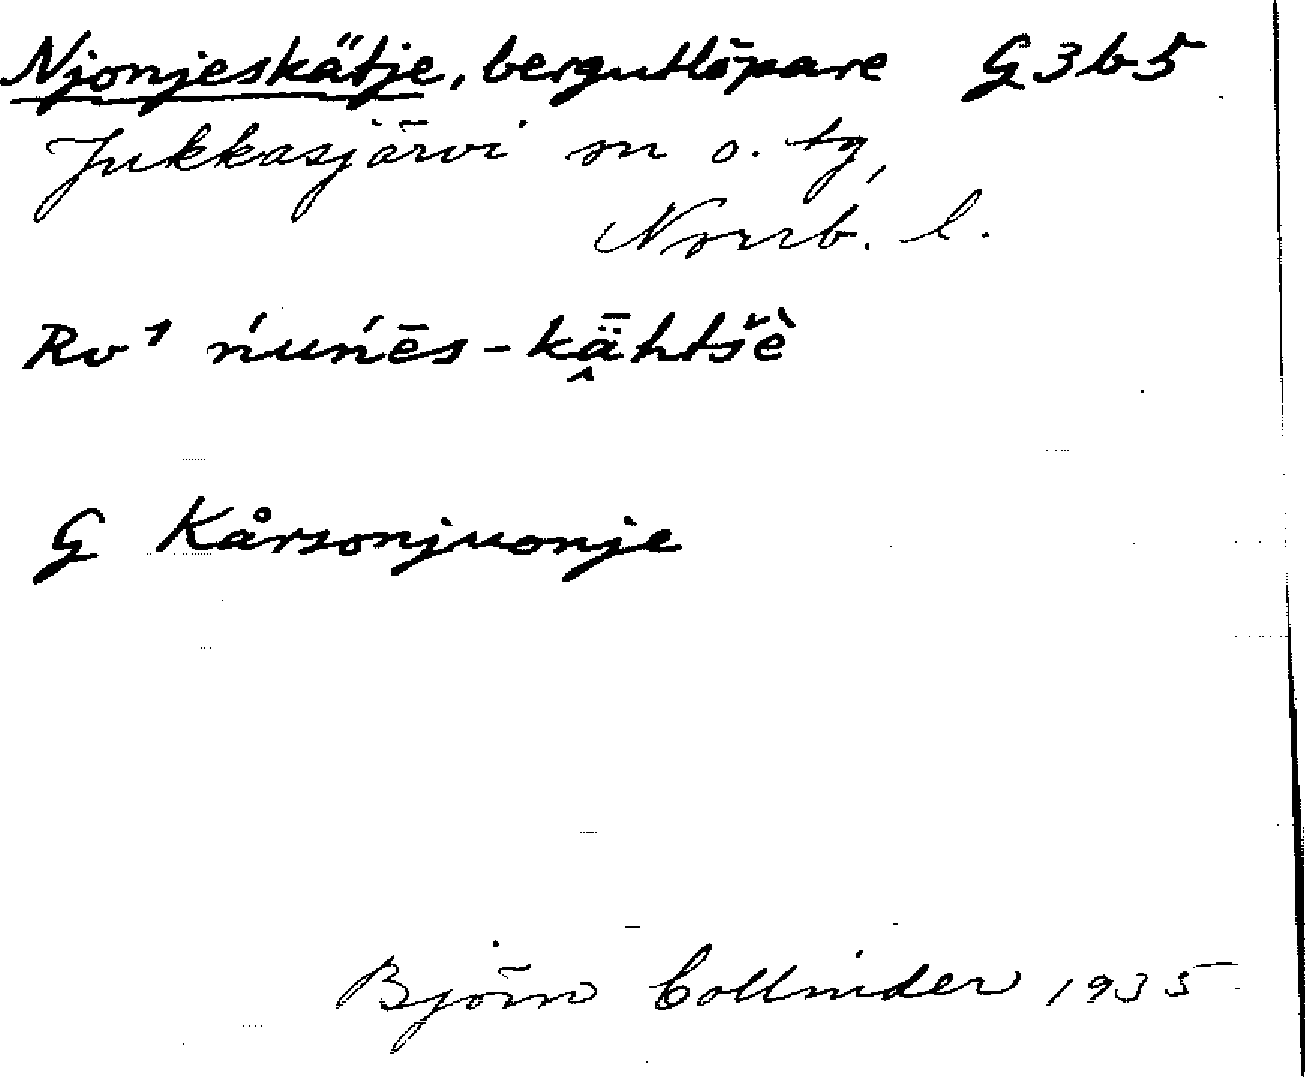 Njonjeskätje, bergutlöpare G3b5
Jukkasjärvi sn o. tg,
Norrb. l.
Rv¹ ńuńēs-kǟ̭htšè
G Kårsonjuonje
Björn Collinder 1935